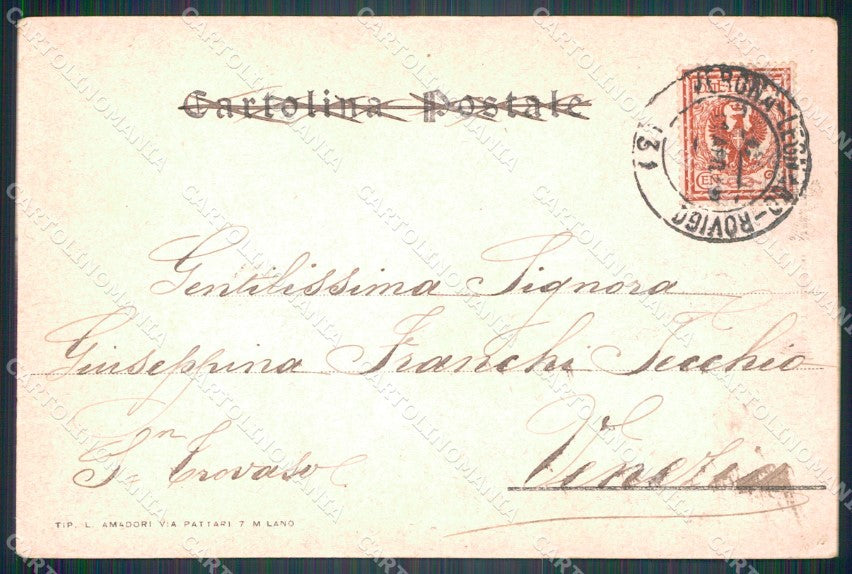 Cartolina Postale
VERONA-LEGNAGO-ROVIGO
(3)
Gentilissima Signora
Giuseppina Franchi Tecchio
Sn Trovaso
Venezia
TIP. L. AMADORI VIA PATTARI 7 MILANO
CARTOLINOMANIA